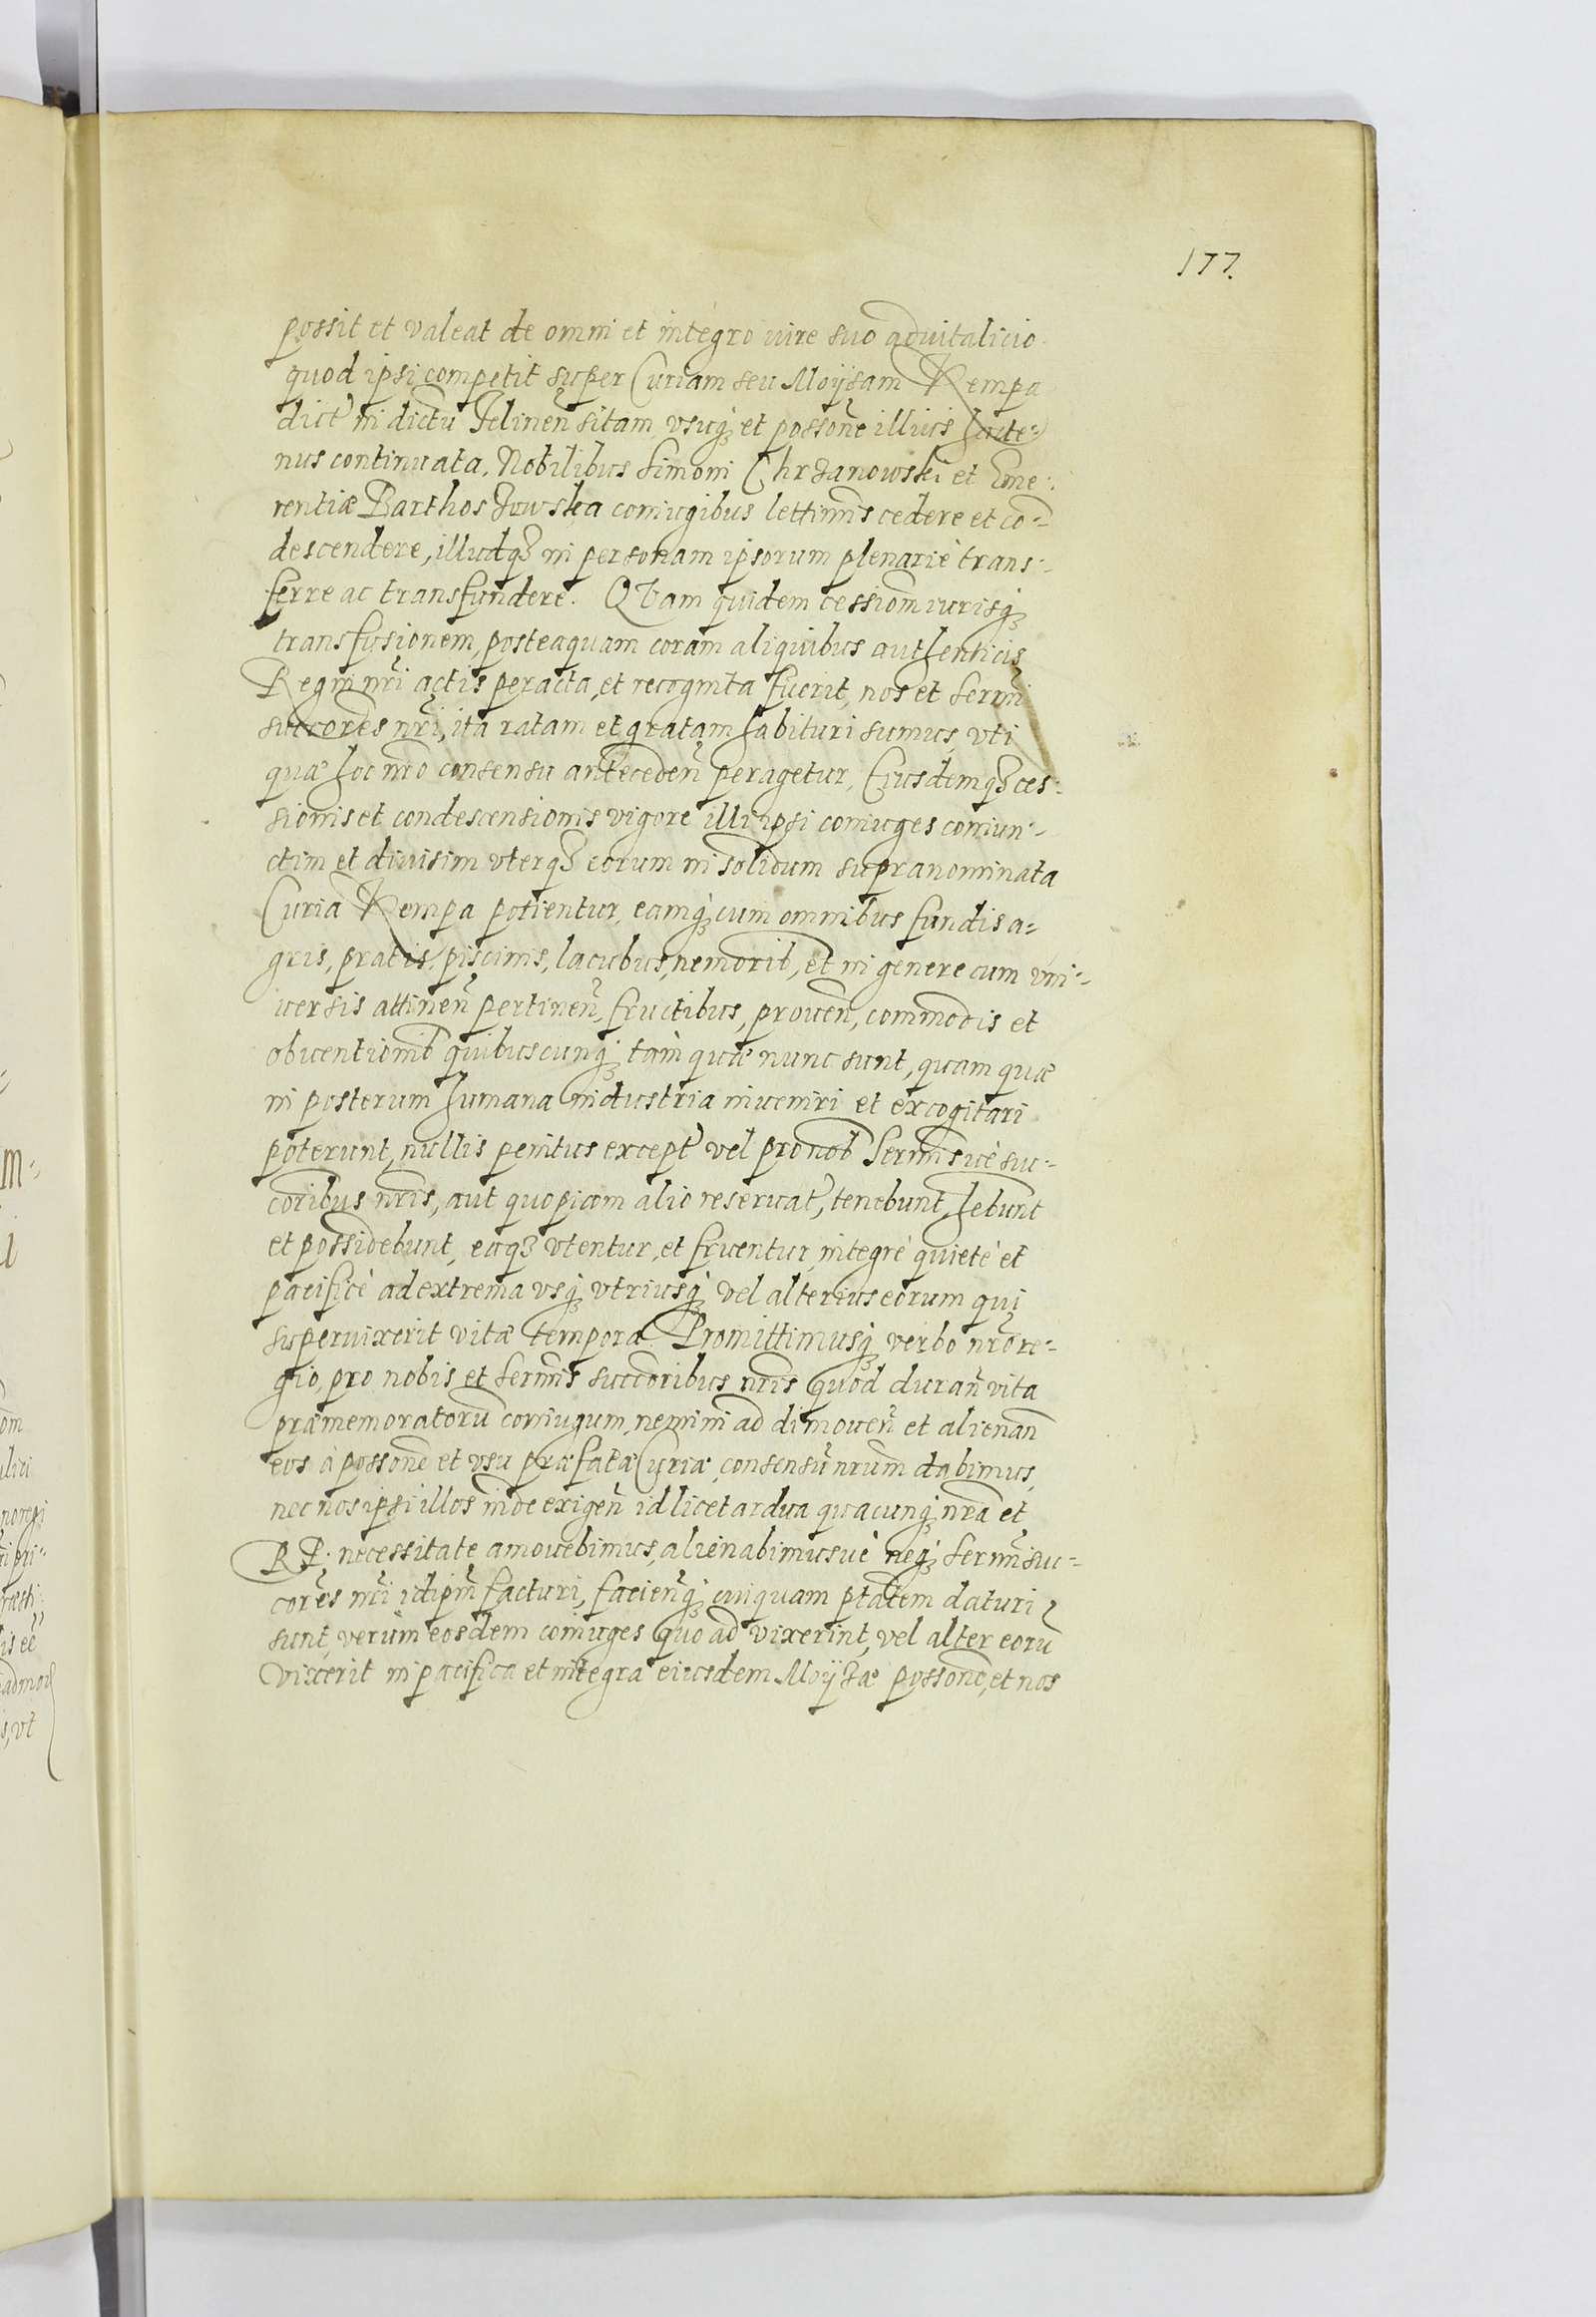 177.
possit et valeat de omni et integro iure suo aduitalicio
quod ipsi competit super Curiam seu Moÿzam Kempa
dict' in dictu Felinen̄ sitam, vsuq₃ et possōne illius hacte=
nus continuata, Nobilibus Simoni Chrzanowski et Eme:
rentiæ Barthoszowska coniugibus lettimis cedere et co=
descendere, illudq₃ in personam ipsorum plenariè trans=
ferre ac transfundere. QVam quidem cessiom̄ iurisq₃
transfusionem, posteaquam coram aliquibus authenticis
Regni nr̄i actis peracta, et recognita fuerit, nos et Serm̄i
succores nr̄i, ita ratam et gratam habituri sumus, vti
quæ hoc nr̄o consensu anteceden̄ peragetur, Eiusdemq₃ ces:
sionis et condescensionis vigore illi ipsi coniuges coniun=
ctim et diuisim vterq₃ eorum in solidum supranominata
Curia Kempa potientur, eamq₃ cum omnibus fundis a=
gris, pratis, piscinis, lacubus, nemorib, et in genere cum vni=
uersis attinen̄ pertinen̄, fructibus, prouen̄, commodis et
obuentionib quibuscunq₃ tam quæ nunc sunt, quam quæ
in posterum humana industria inueniri et excogitari
poterunt, nullis penitus except' vel pro nob Serm̄isue suc=
coribus nr̄is, aut quopiam alio reseruat', tenebunt, hebunt
et possidebunt, eaq₃ vtentur, et fruentur, integrè quietè et
pacificè ad extrema vsq₃ vtriusq₃ vel alterius eorum qui
superuixerit vitæ tempora. Promittimusq₃ verbo nr̄o re=
gio, pro nobis et Serm̄is succoribus nr̄is quod duran̄ vita
præmemoratorū coniugum, nemini ad dimouen̄ et alienan̄
eos à possōne et vsu præfatæ Curiæ, consensū nr̄um dabimus,
nec nos ipsi illos inde exigen̄ id licet ardua quacunq₃ nr̄a et
RP. necessitate amouebimus, alienabimusuè neq₃ Serm̄i suc=
cores nr̄i idipm̄ facturi, faciendiq₃ cuiquam ptatem daturi
sunt, verùm eosdem coniuges quo ad vixerint, vel alter eorū
vixerit in pacifica et integra eiusdem Moÿzæ possōne, et nos